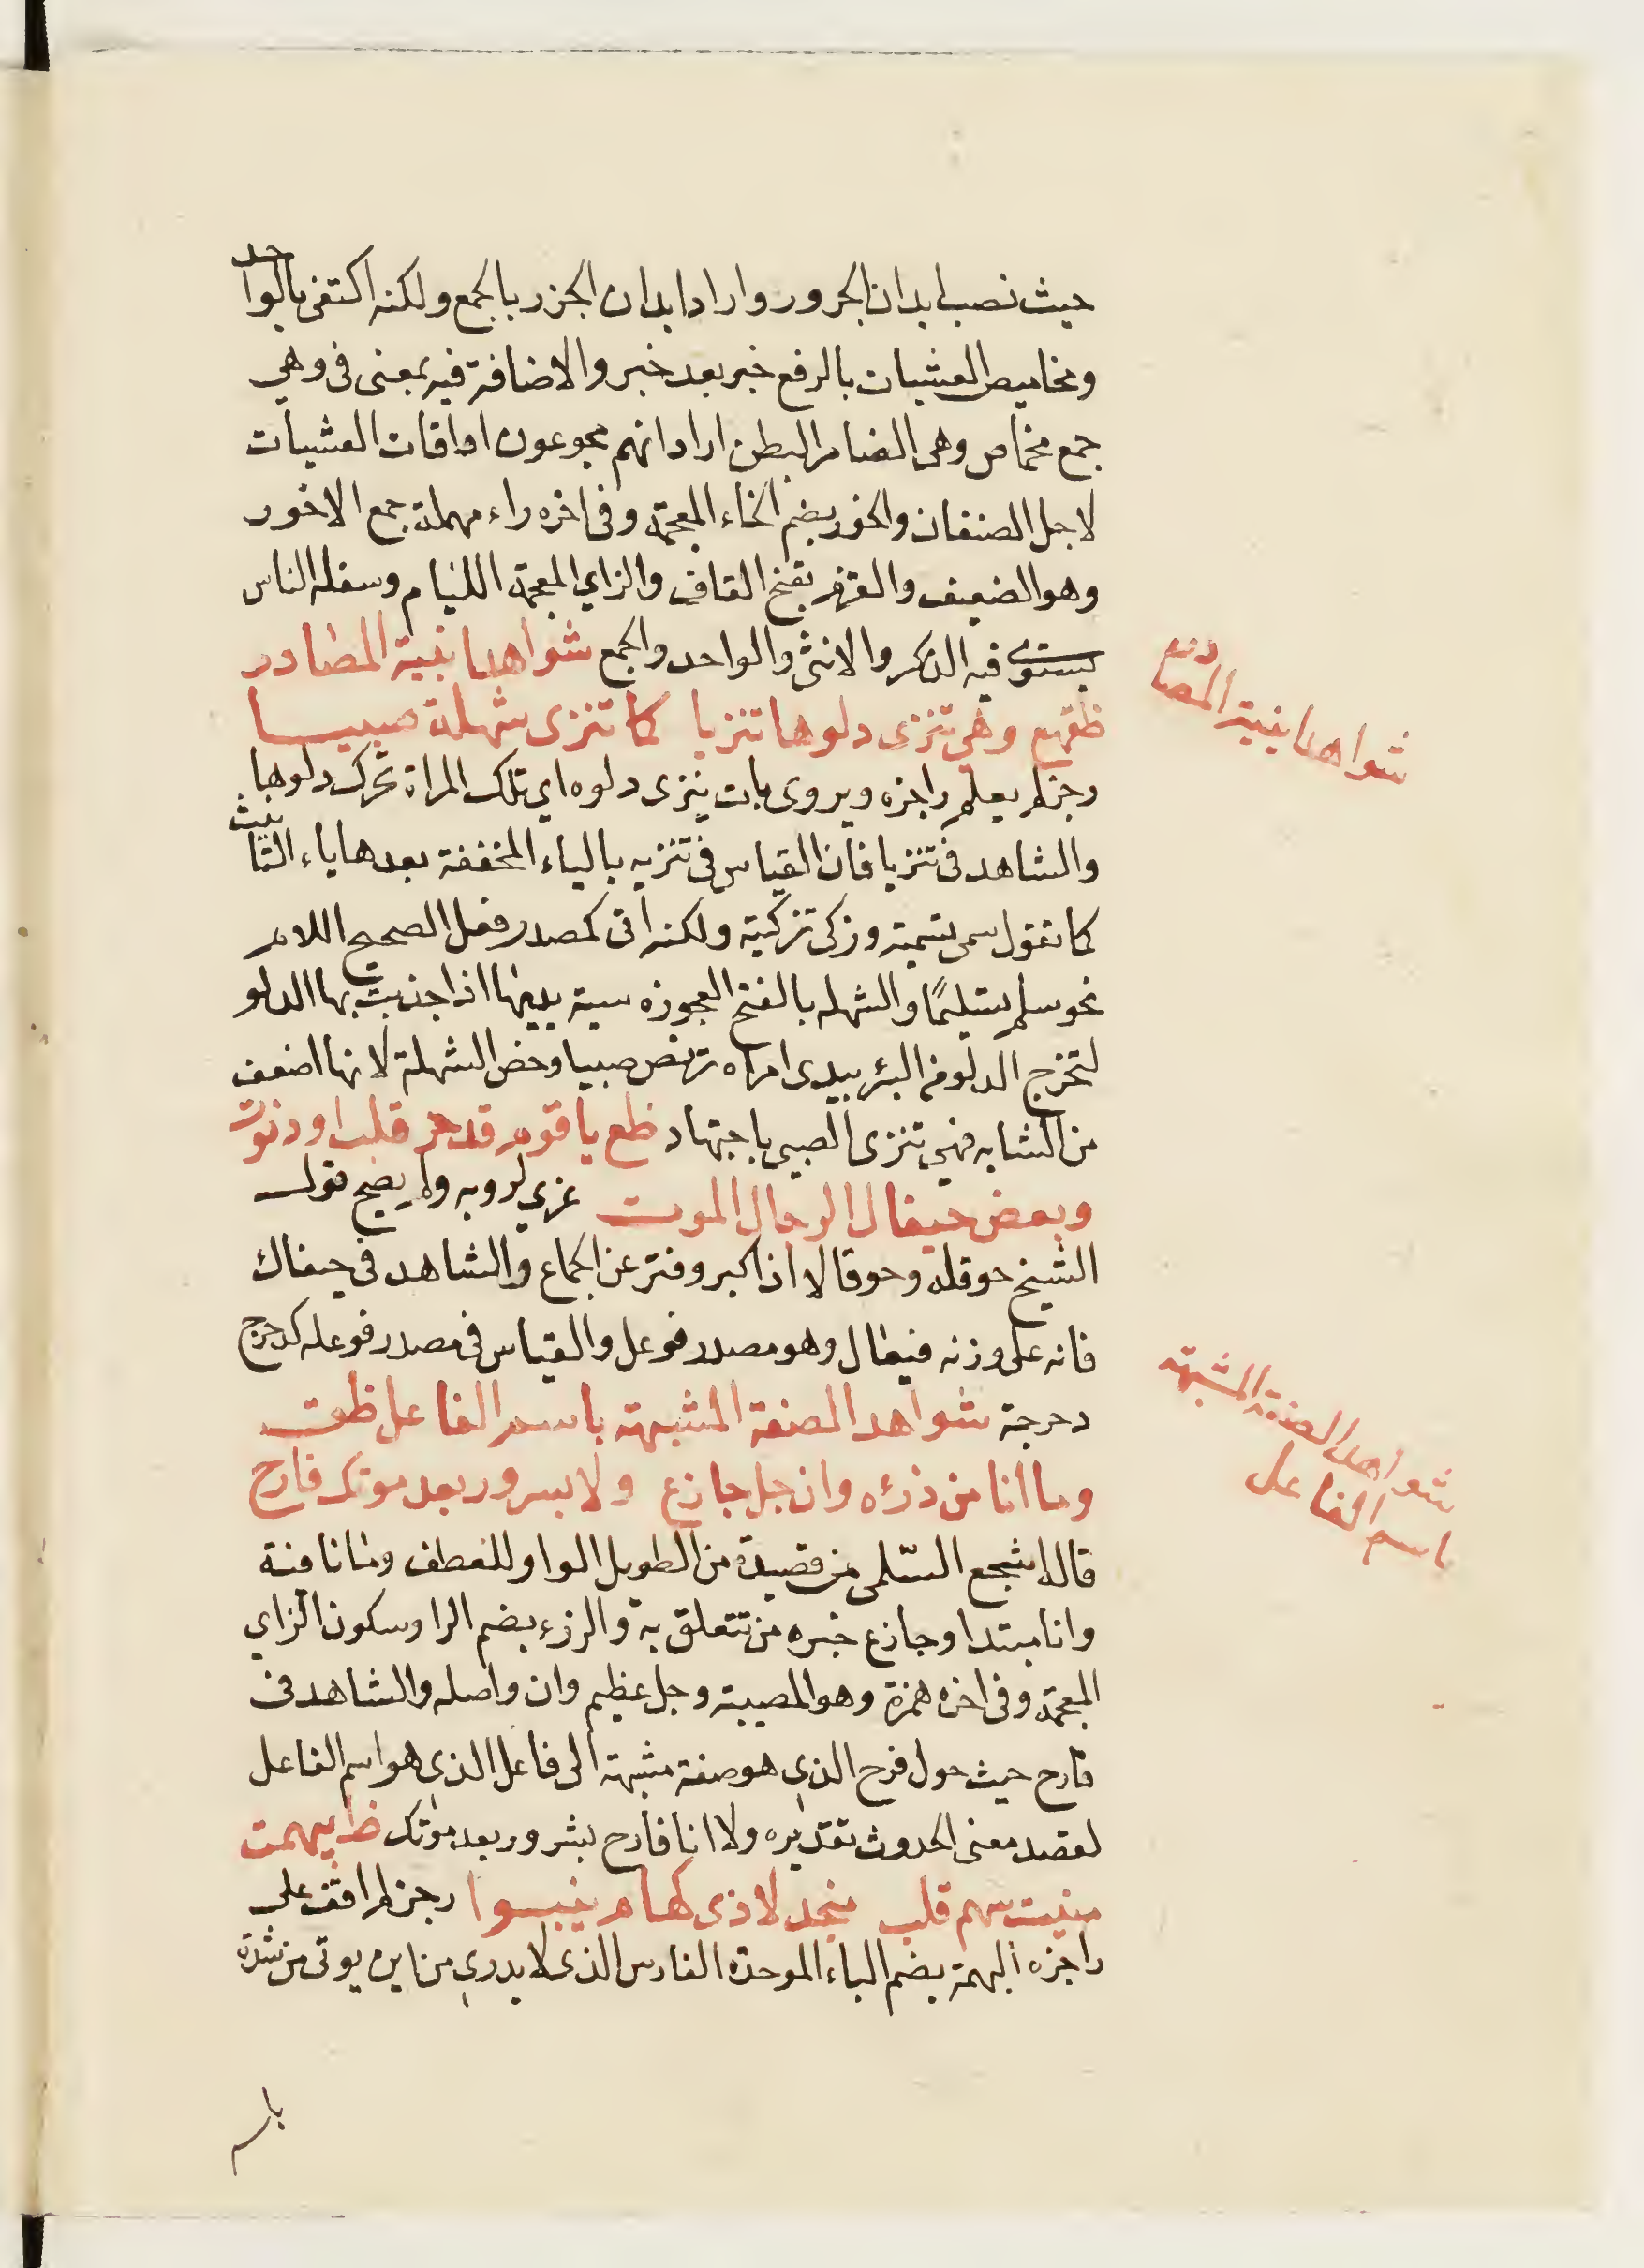 حيث نصب ابدان الجزور واراد ابدان الجزر بالجمع ولكنه اكتفى بالواحد
ومخاميص العشيات بالرفع خبر بعد خبر والاضافة فيه بمعنى فى وهي
جمع مخماص وهى الضامر البطن اراد انهم مجوعون اواقات العشيات
لاجل الضيفان والخور بضم الخاء المعجمة وفى اخره راء مهملة جمع الاخور
وهو الضعيف والقزم بفتح القاف والزاي المعجمة اللئيام وسفله الناس
يستوى فيه الذكر والانثى والواحد والجمع شواهد ابنية المصادر
ظقهع وهى تنزى دلوها تنزيا كما تنزى شهلة صبيا
رجز لم يعلم راجزه ويروى باتت ينزى دلوه اي تلك المراة تحرك دلوها
والشاهد فى تنزيا فان القياس فى تنزيه بالياء المخففة بعدها ياء التانيث
كما تقول سمى تسمية وزكى تزكية ولكنه اتى كمصدر فعل الصحيح اللام
نحو سلم تسليمًا والشهله بالفتح العجوزه يديها اذا جذبت بها الدلو
لتخرج الدلو من البئر بيدى امراه ترقص صبيا وخص الشهلة لانها اضعف
من الشابه فهي تنزى الصبى باجتهاد ظع يا قوم قد حوقلت او دنوت
وبعض حيقال الرجال الموت عزي لروبه ولم يصح حوقل
الشيخ حوقله وحوقالا اذا كبر وفتر عن الجماع والشاهد فى حيقال
فانه على وزنه فيعال وهو مصدر فوعل والقياس فى مصدر فوعله كدحرج
دحرجة شواهد الصفة المشبهة باسم الفاعل ظقت
وما انا من ذرئه وان جل جازع ولا بسرور بعد موتك فارح
قاله اشجع السّلمى من قصيدة من الطويل الواو للعطف وما نافية
وانا مبتدا وجازع خبره من تتعلق به والرزء بضم الرا وسكون الزاي
المعجمة وفى اخره همزة وهو المصيبة وجل عظيم وان واصله والشاهد فى
فارح حيث حول فرح الذي هو صفة مشبهة الى فاعل الذي هو اسم الفاعل
لقصد معنى الحدوث تقديره ولا انا فارح بسرور بعد موتك ظ ببهمت
منيت سهم قلب منجد لا ذى كهام ينبوا رجز لم اقف على
راجزه البهمة بضم الباء الموحدة الفارس الذى لا يدري من اين يوتى من شدة
باسه
شواهد ابنية المصادر
شواهد الصفة المشبهة
باسم الفاعل